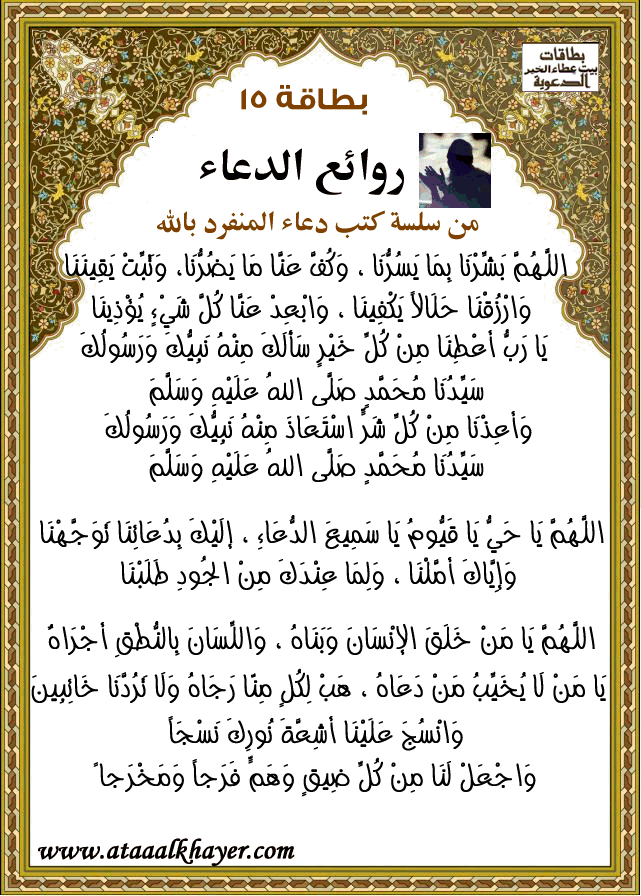 بطاقات
بيت عطاء الخير
الدعوية
بطاقة ١٥
روائع الدعاء
من سلسة كتب دعاء المنفرد بالله
اللَّهُمَّ بَشِّرْنَا بِمَا يَسُرُّنَا ، وَكُفَّ عَنَّا مَا يَضُرُّنَا، وَثَبِّتْ يَقِينَنَا
وَارْزُقْنَا حَلَالاً يَكْفِينَا ، وَابْعِدْ عَنَّا كُلَّ شَيْءٍ يُؤْذِينَا
يَا رَبُّ أعْطِنَا مِنْ كُلِّ خَيْرٍ سَألَكَ مِنْهُ نَبِيُّكَ وَرَسُولُكَ
سَيِّدُنَا مُحَمَّدٍ صَلَّى اللهُ عَلَيْهِ وَسَلَّمَ
وَأعِذْنَا مِنْ كُلِّ شَرٍّ اسْتَعَاذَ مِنْهُ نَبِيُّكَ وَرَسُولُكَ
سَيِّدُنَا مُحَمَّدٍ صَلَّى اللهُ عَلَيْهِ وَسَلَّمَ
اللَّهُمَّ يَا حَيُّ يَا قَيُّومُ يَا سَمِيعَ الدُّعَاءِ ، إلَيْكَ بِدُعَائِنَا تَوَجَّهْنَا
وَإيَّاكَ أمَّلْنَا ، وَلِمَا عِنْدَكَ مِنْ الجُودِ طَلَبْنَا
اللَّهُمَّ يَا مَنْ خَلَقَ الإنْسَانَ وَبَنَاهُ ، وَاللِّسَانَ بِالنُّطْقِ أجْرَاهُ
يَا مَنْ لَا يُخَيِّبُ مَنْ دَعَاهُ ، هَبْ لِكُلٍ مِنَّا رَجَاهُ وَلَا تَرُدَّنَا خَائِبِينَ
وَانْسُجَ عَلَيْنَا أشِعَّةَ نُورِكَ نَسْجَاً
وَاجْعَلْ لَنَا مِنْ كُلِّ ضِيقٍ وَهَمٍ فَرَجاً وَمَخْرَجاً
www.ataaalkhayer.com